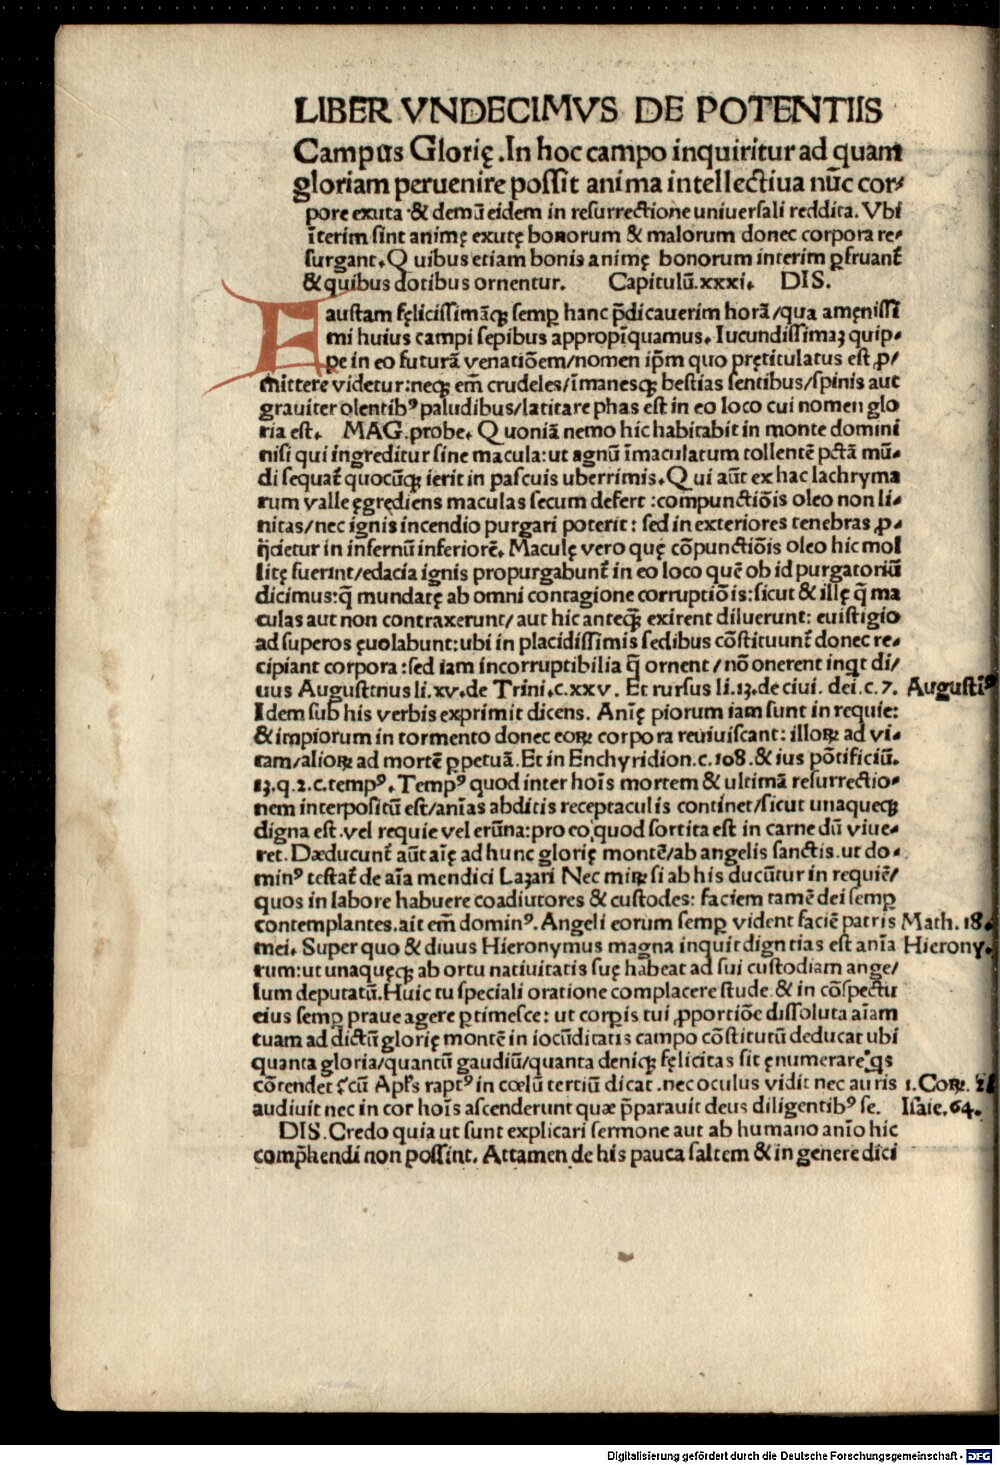 LIBER VNDECIMVS DE POTENTIIS
Campus Glorię .In hoc campo inquiritur ad quam
gloriam peruenire possit anima intellectiua nūc cor⸗
pore exuta & demū eidem in resurrectione uniuersali reddita. Vbi
īterim sint animę exutę bonorum & malorum donec corpora re⸗
surgant. Quibus etiam bonis animę bonorum interim ꝑfruant᷑
& quibus dotibus ornentur. Capitulū.xxxi. DIS.
Faustam fęlicissimāꝗ semꝑ hanc p̄dicauerim horā/qua amęnissi
mi huius campi sepibus appropīquamus. Iucundissimaꝫ quip⸗
pe in eo futurā venatiōem/nomen ip̄m quo prętitulatus est ꝓ/
mittere videtur:neqꝫ em̄ crudeles/īmanesqꝫ bestias sentibus/spinis aut
grauiter olentibꝰ paludibus/latitare phas est in eo loco cui nomen glo
ria est. MAG.probe. Quoniā nemo hic habitabit in monte domini
nisi qui ingreditur sine macula:ut agnū īmaculatum tollentē pctā mū⸗
di sequat᷑ quocūqꝫ ierit in pascuis uberrimis.Qui aūt ex hac lachryma
rum valle ęgrediens maculas secum defert :compunctiōis oleo non li⸗
nitas/nec ignis incendio purgari poterit: sed in exteriores tenebras ꝓ⸗
ijcietur in infernū inferiorē. Maculę vero quę cōpunctiōis oleo hic mol
litę fuerint/edacia ignis propurgabunt᷑ in eo loco quē ob id purgatoriū
dicimus:q̄ mundatę ab omni contagione corruptiōis:sicut & illę q̄ ma
culas aut non contraxerunt/ aut hic anteqꝫ exirent diluerunt: euistigio
ad superos ęuolabunt:ubi in placidissimis sedibus cōstituunt᷑ donec re⸗
cipiant corpora :sed iam incorruptibilia q̄ ornent/nō onerent inqt di/
uus Augustinus li.xv.de Trini.c.xxv. Et rursus li.13.de ciui. dei.c.7. Augustiꝰ
Idem sub his verbis exprimit dicens. Anię piorum iam sunt in requie:
& impiorum in tormento donec eoꝝ corpora reuiuiscant: illoꝝ ad vi⸗
tam/alioꝝ ad mortē ꝑpetuā. Et in Enchyridion.c.108.& ius pōtificiū.
13.q.2.c.tempꝰ. Tempꝰ quod inter hoīs mortem & ultimā resurrectio⸗
nem interpositū est/anīas abditis receptaculis continet/sicut unaquęqꝫ
digna est.vel requie vel erūna:pro eo quod sortita est in carne dū viue⸗
ret. Dæducunt᷑ aūt aīę ad hunc glorię montē/ab angelis sanctis.ut do⸗
minꝰ testat᷑ de aīa mendici Lazari Nec miꝝ si ab his ducūtur in requiē/
quos in labore habuere coadiutores & custodes: faciem tamē dei semꝑ
contemplantes.ait em̄ dominꝰ. Angeli eorum semꝑ vident faciē patris Math. 18.
mei. Super quo & diuus Hieronymus magna inquit dignitias est anīa Hierony.
rum:ut unaquęqꝫ ab ortu natiuitatis suę habeat ad sui custodiam ange/
lum deputatū.Huic tu speciali oratione complacere stude & in cōspectu
eius semꝑ praue agere ꝑtimesce: ut corꝑis tui ꝓportiōe dissoluta aīam
tuam ad dictū glorię montē in iocūditatis campo cōstitutū deducat ubi
quanta gloria/quantū gaudiū/quanta deniqꝫ fęlicitas sit ęnumerare qs
cōtendet cū Apl̄s raptꝰ in cœlū tertiū dicat .nec oculus vidit nec auris 1.Coꝝ. 2
audiuit nec in cor hoīs ascenderunt quæ p̄parauit deus diligentibꝰ se. Isaie.64.
DIS. Credo quia ut sunt explicari sermone aut ab humano anīo hic
comp̄hendi non possint. Attamen de his pauca saltem & in genere dici
Digitalisierung gefördert durch die Deutsche Forschungsgemeinschaft - DFG